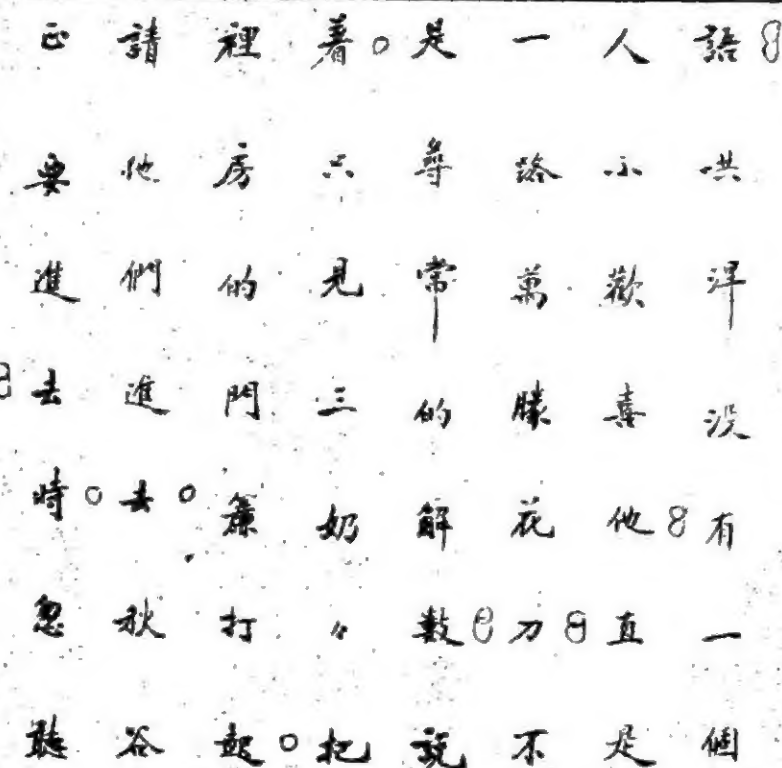 語。哄洋没有一個
人不歡喜他。直是
一路萬花刀。不
是尋常的解數。說
着。只見三奶〃把
裡房的門簾打起。
請他們進去。秋谷
正要進去時。忽聽